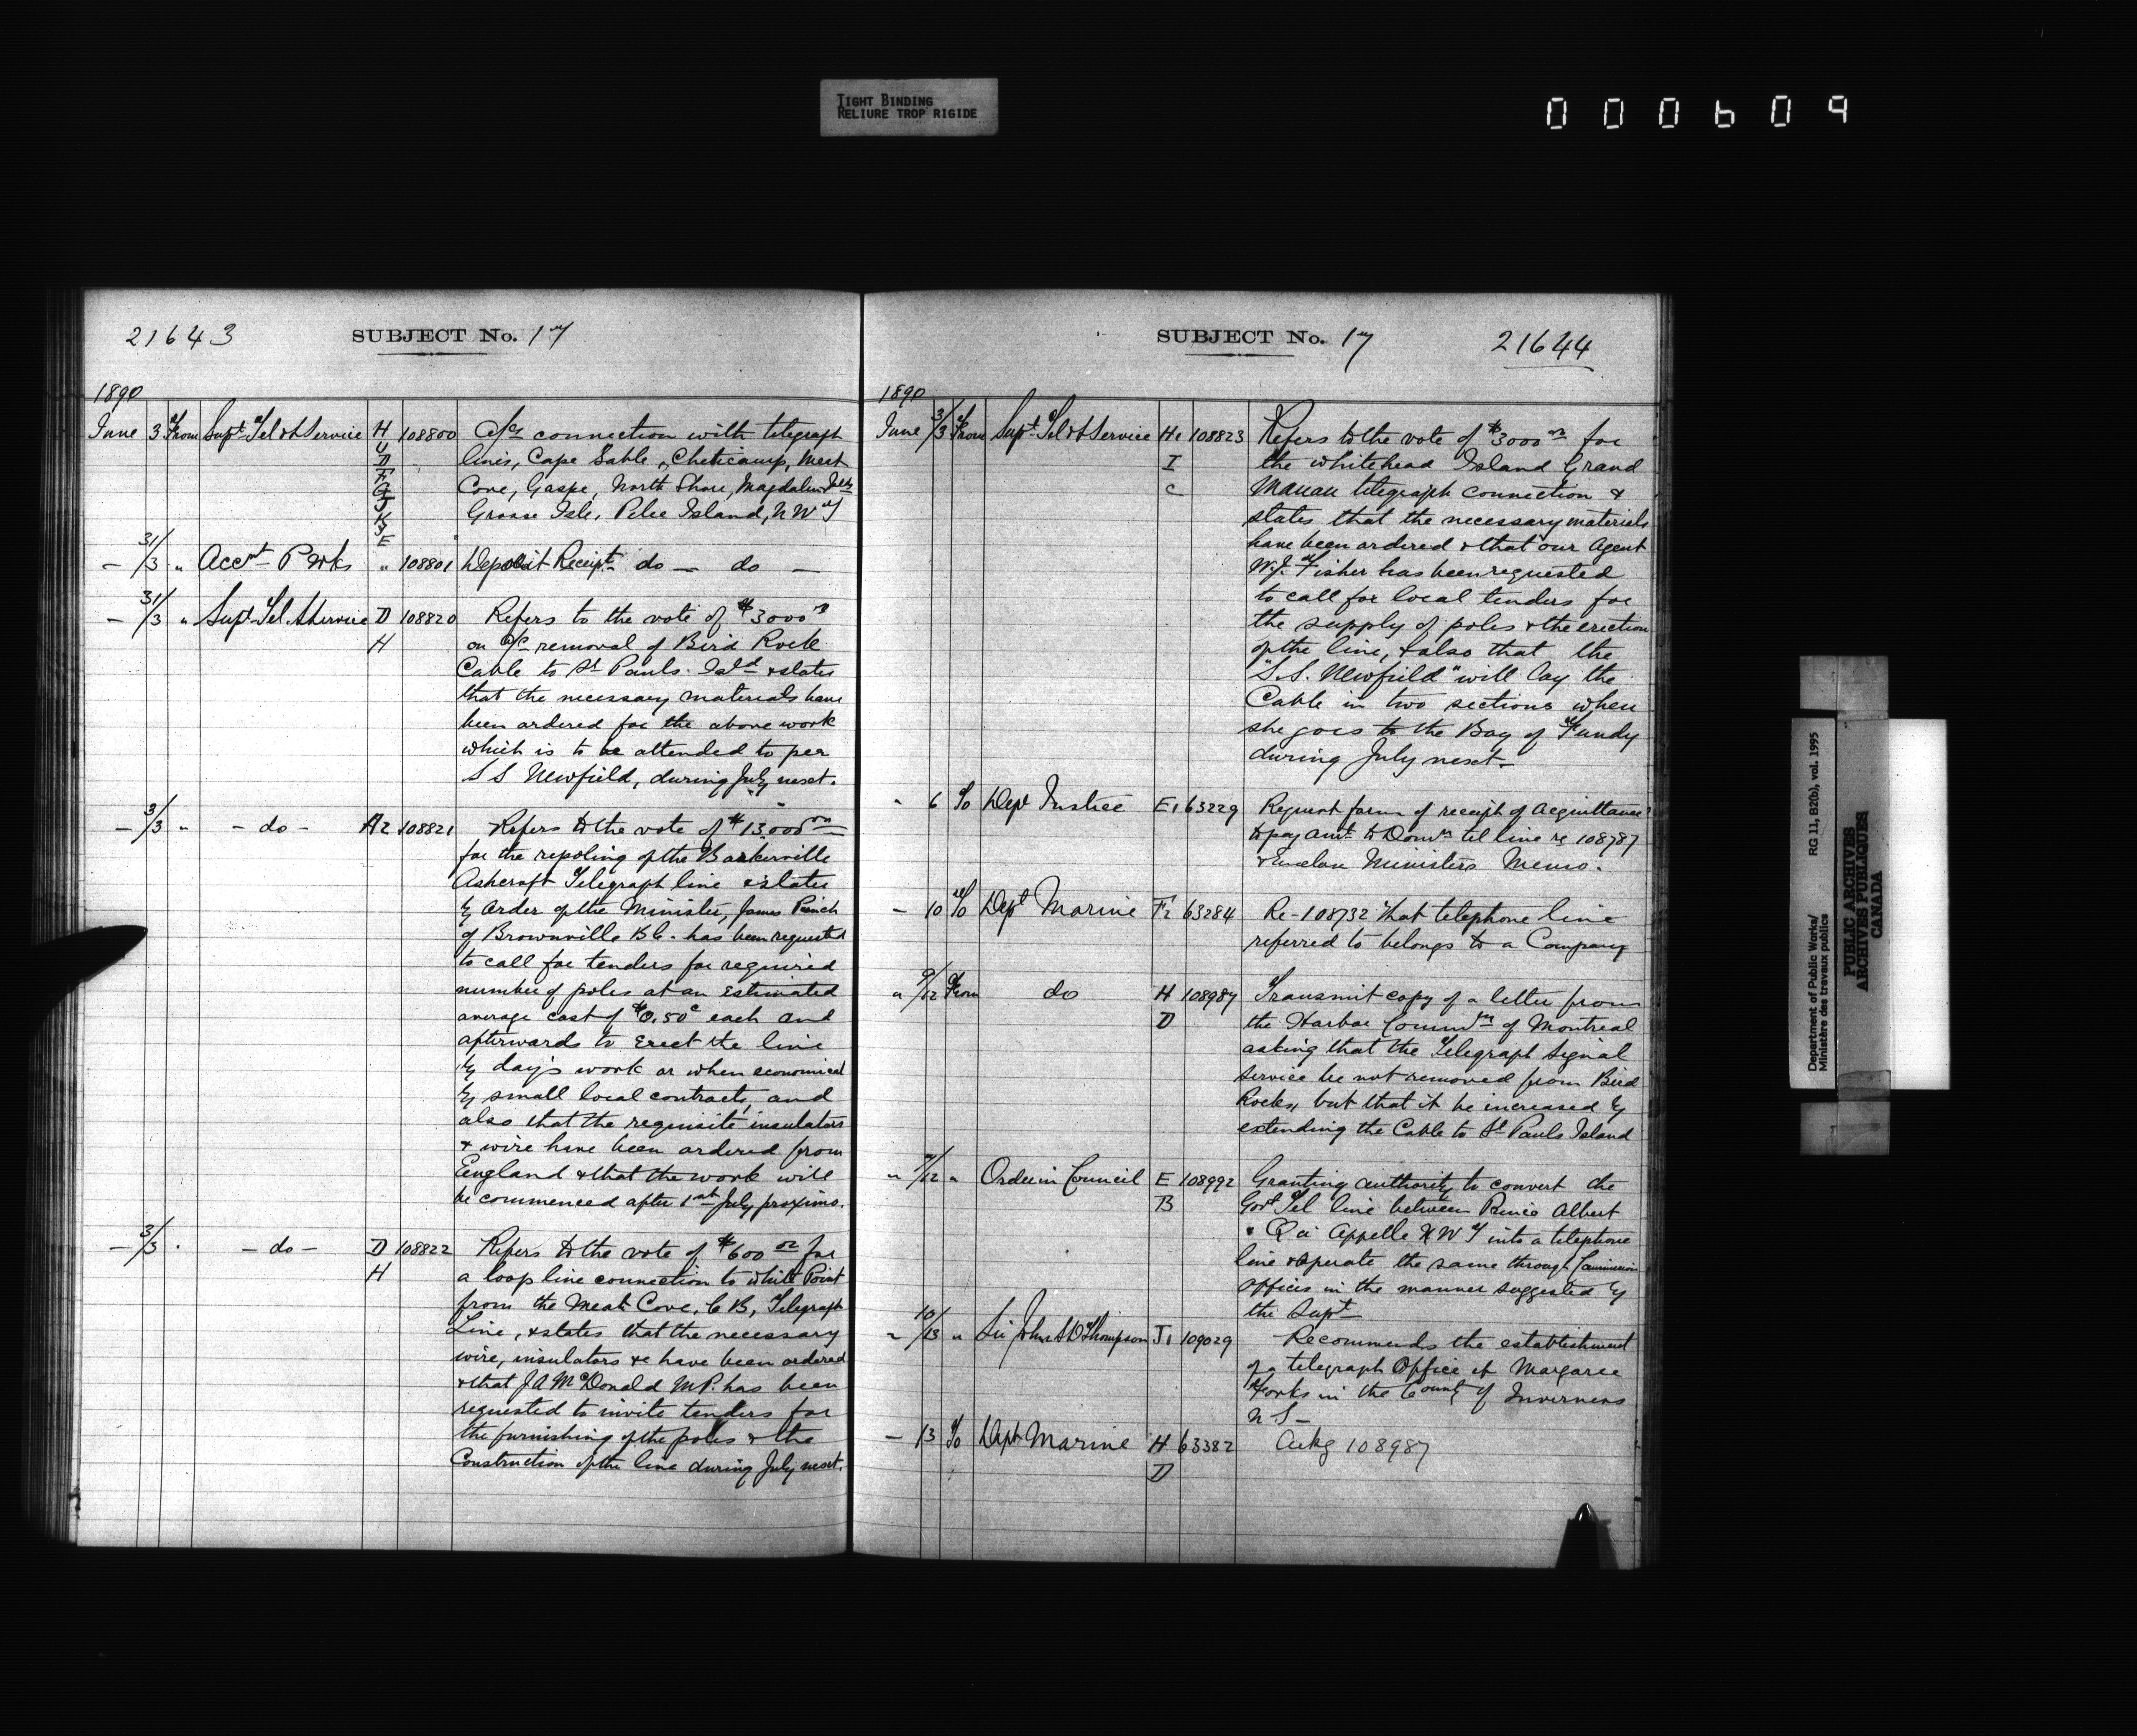 TIGHT BINDING
RELIURE TROP RIGIDE
000609
21643 SUBJECT No. 17
1890
June 3 From Supt Tel & S Service H 108800 A/cs connection with telegraph
U
D lines, Cape Sable, Cheticamp, Meat
F
G Cove, Gaspe, North Shore, Magdalen Islds
J
K Grosse Isle, Pelee Island, N W T
& E
— 31/3 " Acct P Wks " 108801 Deposit Receipt do — do —
— 31/3 " Supt Tel. S Service D 108820 Refers to the vote of $3000
H on a/c removal of Bird Rock
Cable to St Pauls Isld & states
that the necessary materials have
been ordered for the above work
which is to be attended to per
S S Newfield, during July next.
— 3/3 " - do - A2 108821 Refers to the vote of $13,000 00
for the repoling of the Barkerville
Ashcroft Telegraph line & states
by order of the Minister, James
of Brownville B C. has been requested
to call for tenders for required
number of poles at an estimated
average cost of $0.50c each and
afterwards to erect the line
by days work or when economical
by small local contracts, and
also that the requisite insulators
& wire have been ordered from
England & that the work will
be commenced after 1st July proximo.
— 3/3 . - do - D 108822 Refers to the vote of $600 00 for
H a loop line connection to White Point
from the Meat Cove, C B, Telegraph
Line, & states that the necessary
wire, insulators &c have been ordered
& that J A McDonald M P. has been
requested to invite tenders for
the furnishing of the poles & the
Construction of the line during July next.
SUBJECT No. 17 21644
1890
June 3/3 From Supt Tel & S Service H1 108823 Refers to the vote of $3000 00 for
I the Whitehead Island Grand
C Manan telegraph connection &
states that the necessary materials
have been ordered & that our Agent
W. J. Fisher has been requested
to call for local tenders for
the supply of poles & the erection
of the line, & also that the
"S. S. Newfield" will lay the
Cable in two sections when
she goes to the Bay of Fundy
during July next —
" 6 To Dept Justice E1 63229 Request form of receipt of acquittance
to pay amt to Domn tel line re 108787
& Enclose Ministers Memo.
— 10 To Dept Marine F2 63284 Re-108732 that telephone line
referred to belongs to a Company
" 9/12 From do H 108987 Transmit copy of a letter from
D the Harbor Commrs of Montreal
asking that the Telegraph Signal
service be not removed from Bird
Rocks, but that it be increased by
extending the Cable to St Pauls Island
" 7/12 " Order in Council E 108992 Granting authority to convert the
B Govt Tel line between Prince Albert
& Qu Appelle N W T into a telephone
line & operate the same through Commission
offices in the manner suggested by
the Supt —
" 10/13 " Sir John S D Thompson J1 109029 Recommends the establishment
of a telegraph Office at Margaree
Forks in the County of Inverness
N S —
— 13 To Dept Marine H 63382 Ackg 108987
D
Department of Public Works/
Ministère des travaux publics
RG 11, B2(b), vol. 1995
PUBLIC ARCHIVES
ARCHIVES PUBLIQUES
CANADA